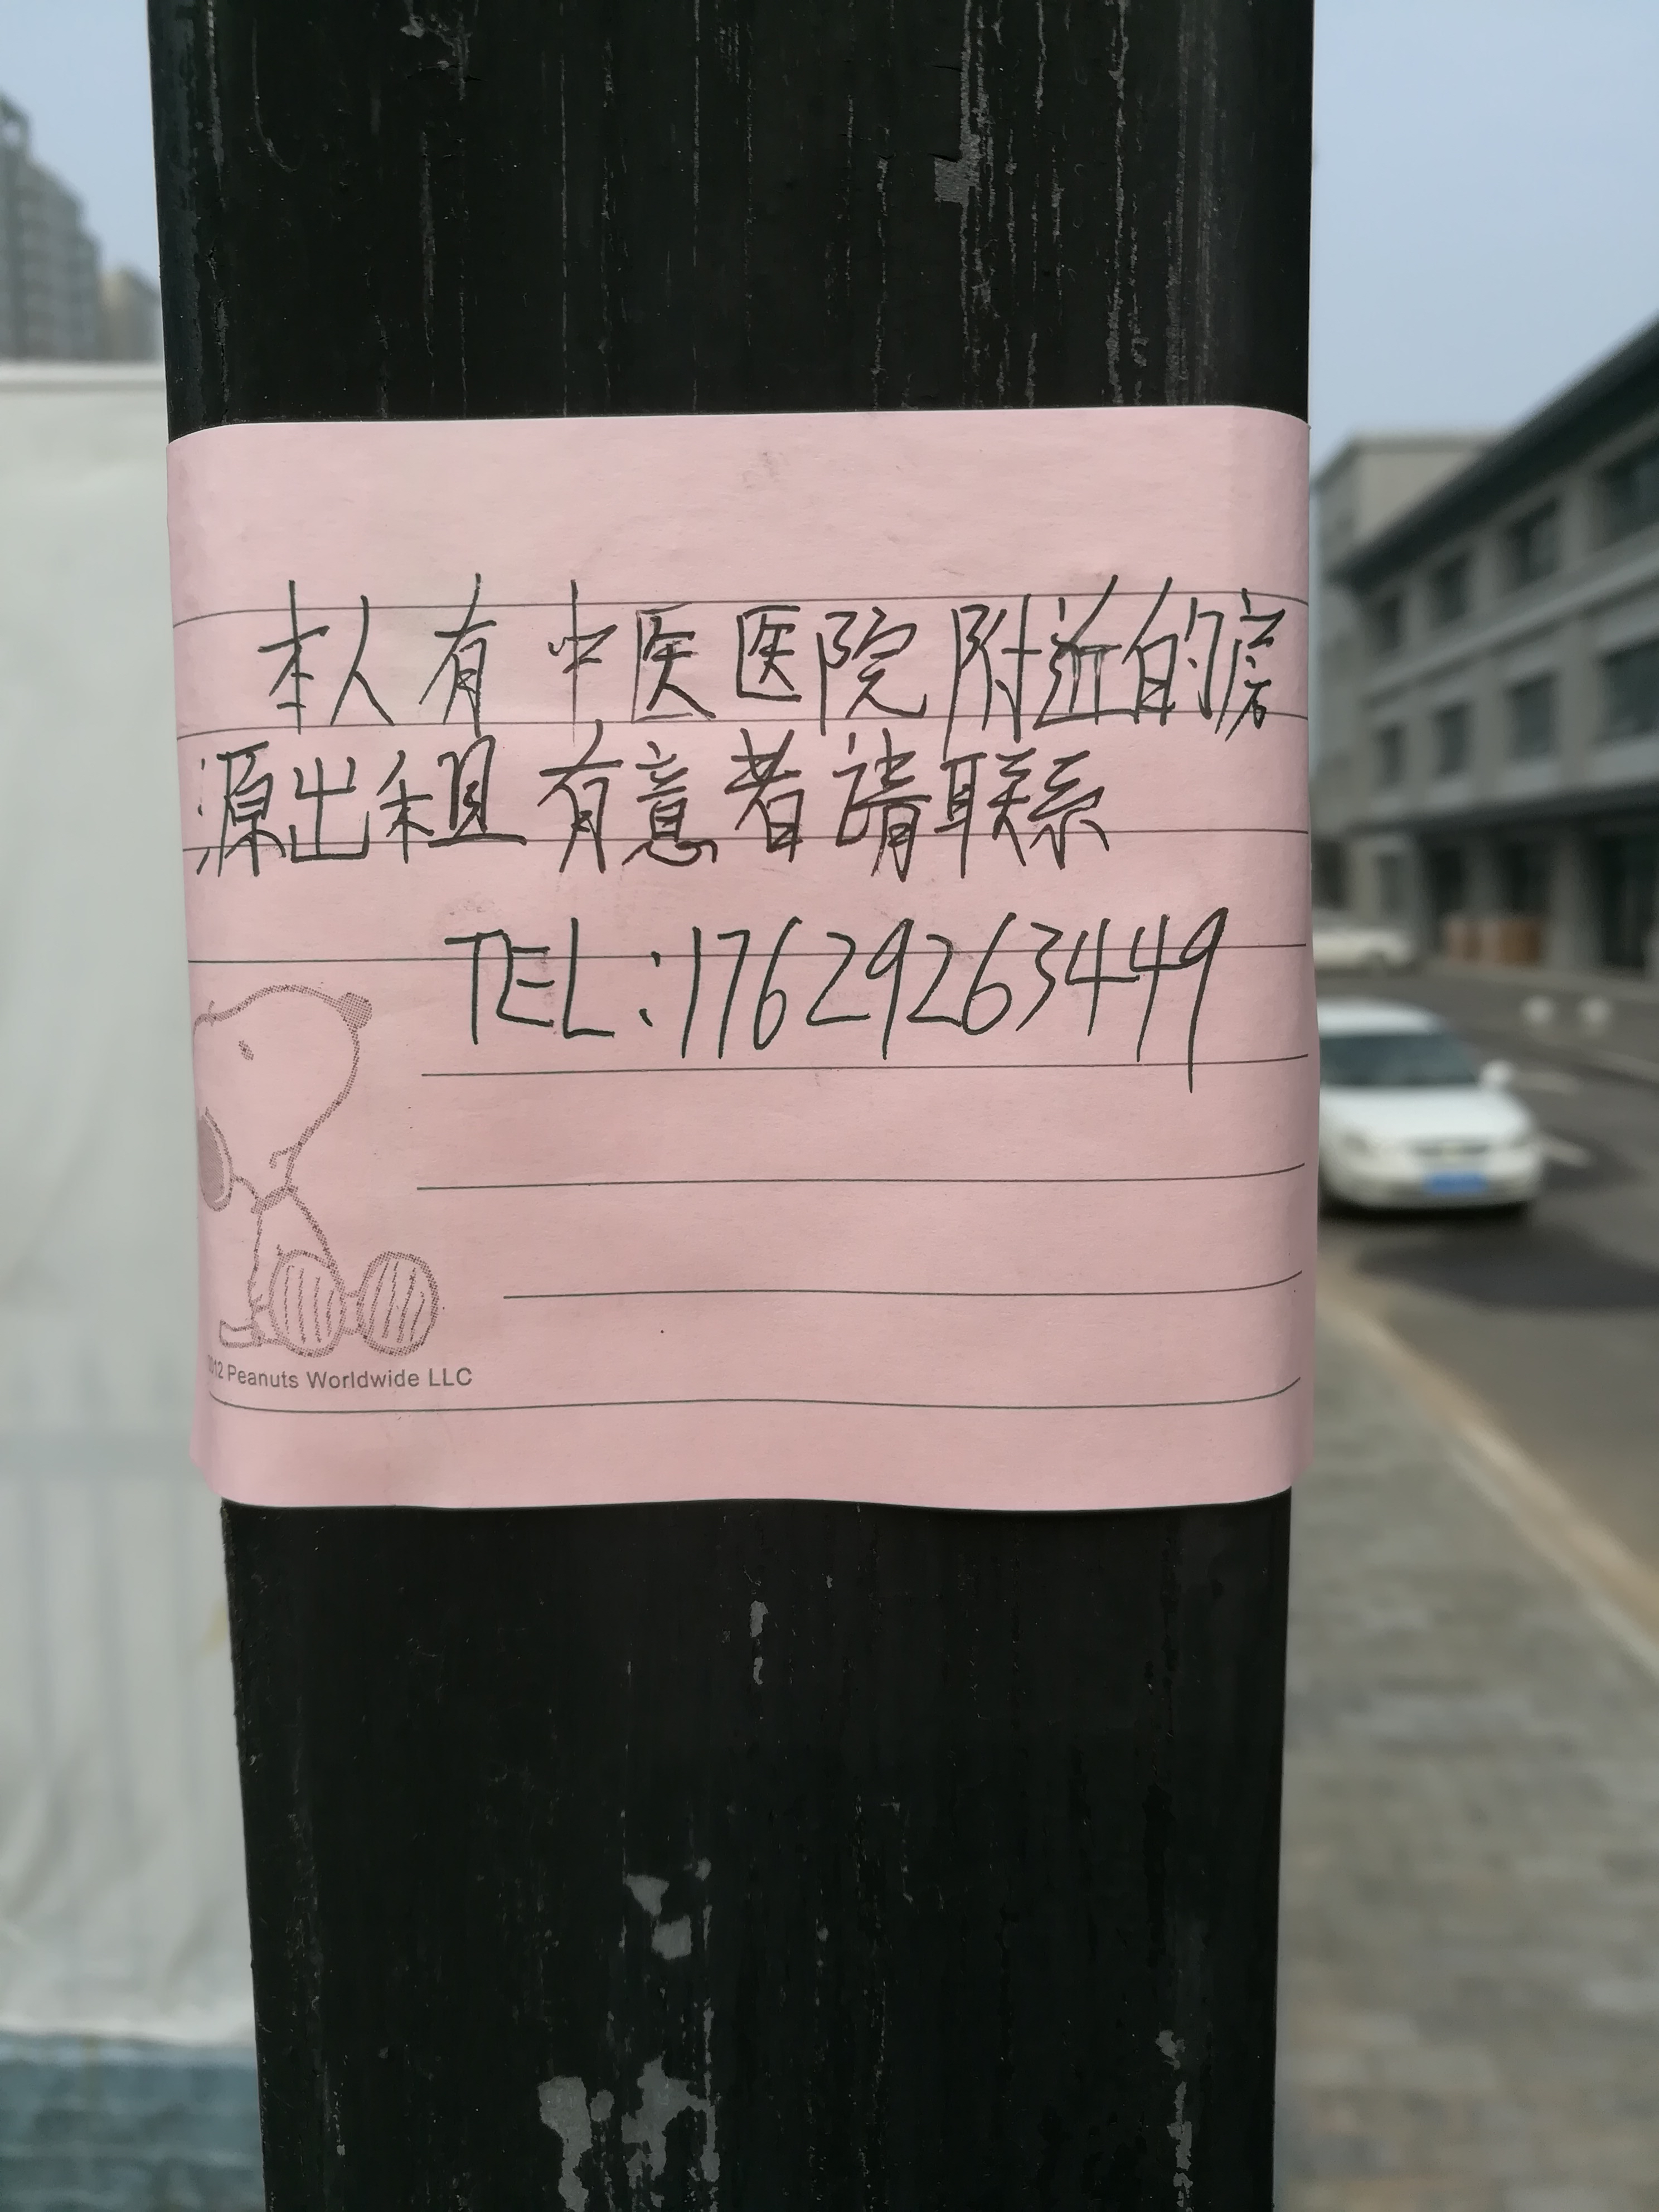 本人有中医医院附近的房
源出租有意者请联系
TEL:17629263449
012 Peanuts Worldwide LLC